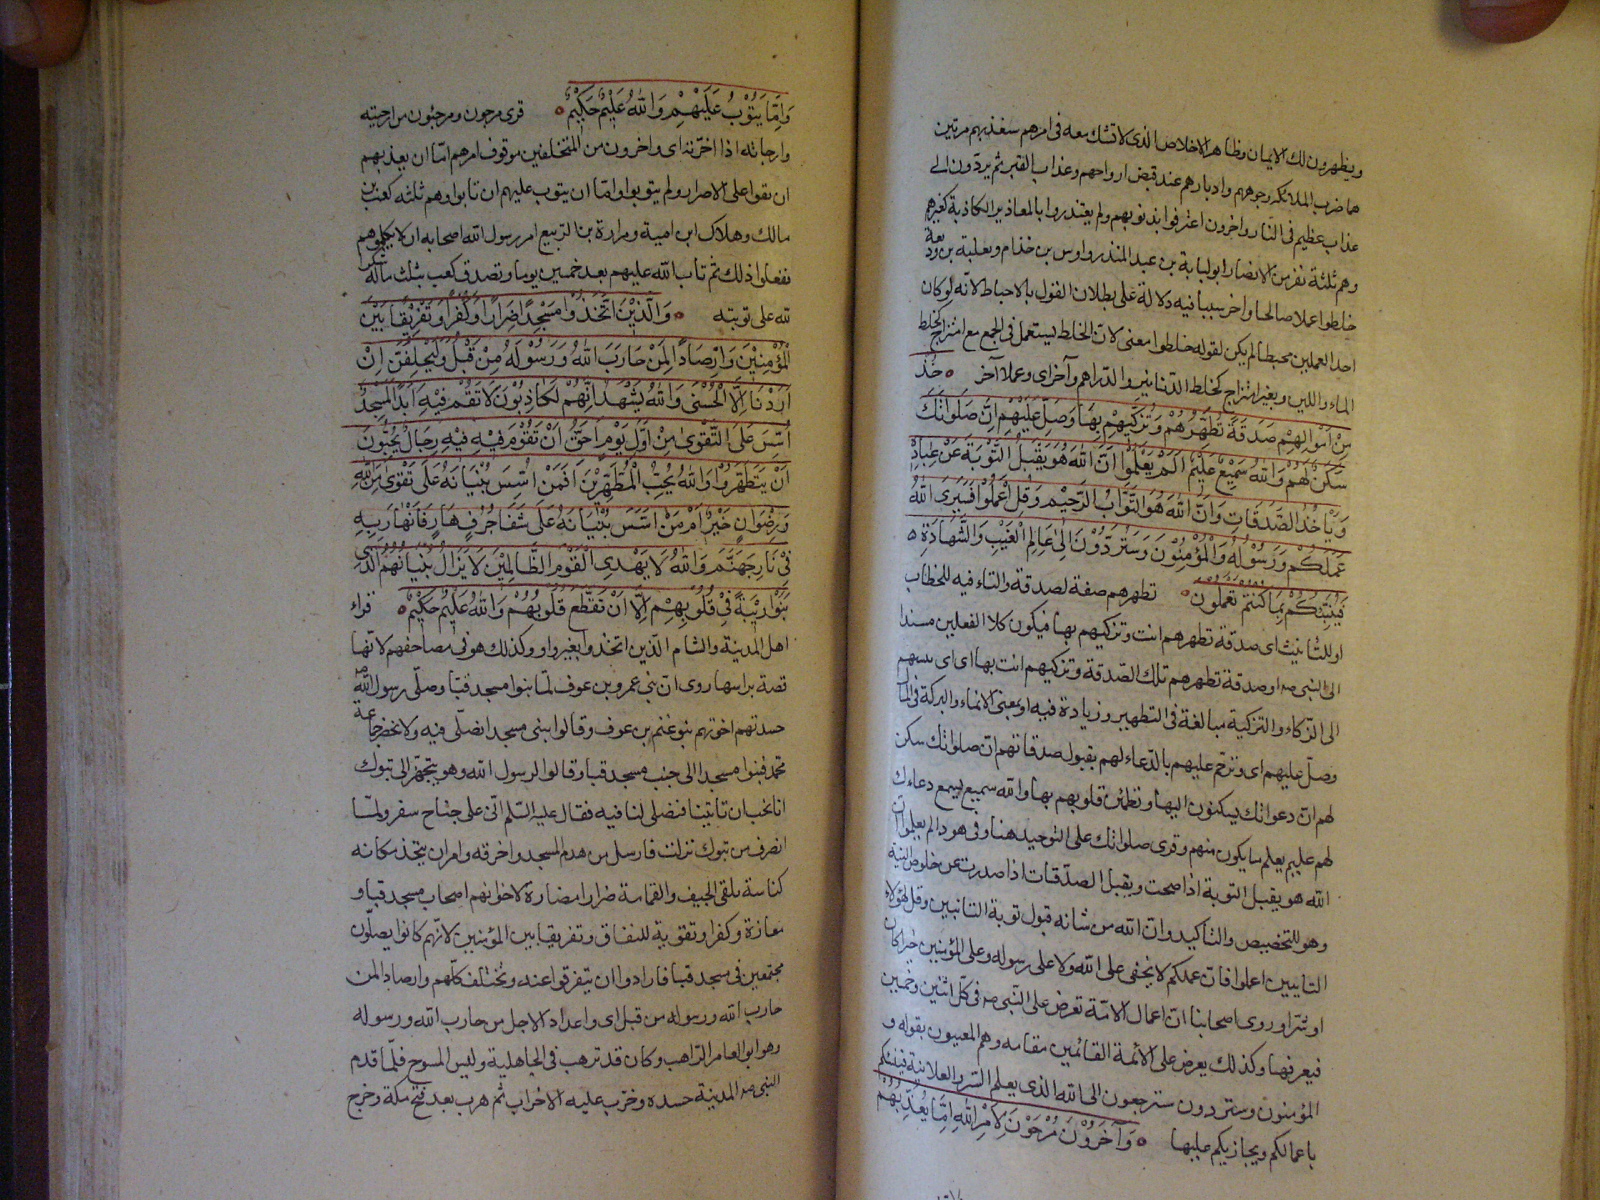 ويظهرون لك الايمان وظاهر الاخلاص الذى لا تشك معه فى امرهم سنعذبهم مرتين
هما ضرب الملائكة وجوههم وادبارهم عند قبض ارواحهم وعذاب القبر ثم يردّون الى
عذاب عظيم فى النار واخرون اعترفوا بذنوبهم ولم يعتذروا بالمعاذير الكاذبة كغيرهم
وهم ثلثة نفر من الانصار ابو لبابة بن عبد المنذر واوس بن خذام وثعلبة بن وديعة
خلطوا عملا صالحا واخر سيّئا فيه دلالة على بطلان القول بالاحباط لانّه لو كان
احد العملين محبطا لم يكن لقوله خلطوا معنى لانّ الخلط يستعمل فى الجمع مع امتزاج كخلط
الماء واللبن وبغير امتزاج كخلط الدنانير والدراهم وآخر اى وعملا آخر ٥ خُذْ
مِنْ اَمْوَالِهِمْ صَدَقَةً تُطَهِّرُهُمْ وَتُزَكِّيهِمْ بِهَا وَصَلِّ عَلَيْهِمْ اِنَّ صَلَوَاتَكَ
سَكَنٌ لَهُمْ وَاللهُ سَمِيعٌ عَلِيمٌ اَلَمْ يَعْلَمُوا اَنَّ اللهَ هُوَ يَقْبَلُ التَّوْبَةَ عَنْ عِبَادِهِ
وَيَأْخُذُ الصَّدَقَاتِ وَاَنَّ اللهَ هُوَ التَّوَّابُ الرَّحِيمُ وَقُلِ اعْمَلُوا فَسَيَرَى اللهُ
عَمَلَكُمْ وَرَسُولُهُ وَالْمُؤْمِنُونَ وَسَتُرَدُّونَ اِلٰى عَالِمِ الْغَيْبِ وَالشَّهَادَةِ ٥
فَيُنَبِّئُكُمْ بِمَا كُنْتُمْ تَعْمَلُونَ ٥ تطهرهم صفة لصدقة والتاء فيه للخطاب
او للتانيث اى صدقة تطهرهم انت وتزكيهم بها فيكون كلا الفعلين مسندا
الى النبى ص او صدقة تطهرهم تلك الصدقة وتزكيهم انت بها اى اى تنسبهم
الى الزكاء والتزكية مبالغة فى التطهير وزيادة فيه او بمعنى الانماء والبركة فى المال
وصلّ عليهم اى وترحّم عليهم بالدّعاء لهم بقبول صدقاتهم انّ صلواتك سكن
لهم انّ دعواتك يسكنون اليها وتطمئن قلوبهم بها والله سميع يسمع دعاءك
لهم عليم يعلم ما يكون منهم وقرى صلواتك على التوحيد هنا وفى هود الم يعلموا انّ
الله هو يقبل التوبة اذا صحت ويقبل الصدّقات اذا صدرت عن خلوص النية
وهو للتخصيص والتأكيد وانّ الله من شانه قبول توبة التائبين وقل لهؤلاء
التايبين اعملوا فانّ عملكم لا يخفى على الله ولا على رسوله وعلى المؤمنين خيرا كان
او شرّا وروى اصحابنا انّ اعمال الامّة تعرض على النّبى ص فى كلّ اثنين وخميس
فيعرفها وكذلك يعرض على الائمة القائمين مقامه وهم المعنيون بقوله و
المؤمنون وستردون سترجعون الى الله الذى يعلم السّر والعلانية فينبئكم
باعمالكم ويجازيكم عليها ٥ وَآخَرُونَ مُرْجَوْنَ لِاَمْرِ اللهِ اِمَّا يُعَذِّبُهُمْ
وَاِمَّا يَتُوبُ عَلَيْهِمْ وَاللهُ عَلِيمٌ حَكِيمٌ ٥ قرى مرجون ومرجئون من ارجيته
وارجاته اذا اخّرته اى واخرون من المتخلفين موقوف امرهم امّا ان يعذبهم
ان بقوا على الاصرار ولم يتوبوا وامّا ان يتوب عليهم ان تابوا وهم ثلثة كعب بن
مالك وهلال ابن امية ومرارة بن الربيع امر رسول الله اصحابه ان لا يكلموهم
ففعلوا ذلك ثم تاب الله عليهم بعد خمسين يوما وتصدق كعب بثلث ماله شكرا
لله على توبته ٥ وَالَّذِينَ اتَّخَذُوا مَسْجِدًا ضِرَارًا وَكُفْرًا وَتَفْرِيقًا بَيْنَ
الْمُؤْمِنِينَ وَاِرْصَادًا لِمَنْ حَارَبَ اللهَ وَرَسُولَهُ مِنْ قَبْلُ وَلَيَحْلِفُنَّ اِنْ
اَرَدْنَا اِلَّا الْحُسْنٰى وَاللهُ يَشْهَدُ اِنَّهُمْ لَكَاذِبُونَ لَا تَقُمْ فِيهِ اَبَدًا لَمَسْجِدٌ
اُسِّسَ عَلَى التَّقْوٰى مِنْ اَوَّلِ يَوْمٍ اَحَقُّ اَنْ تَقُومَ فِيهِ فِيهِ رِجَالٌ يُحِبُّونَ
اَنْ يَتَطَهَّرُوا وَاللهُ يُحِبُّ الْمُطَّهِّرِينَ اَفَمَنْ اَسَّسَ بُنْيَانَهُ عَلٰى تَقْوٰى مِنَ اللهِ
وَرِضْوَانٍ خَيْرٌ اَمْ مَنْ اَسَّسَ بُنْيَانَهُ عَلٰى شَفَا جُرُفٍ هَارٍ فَانْهَارَ بِهِ
فِى نَارِ جَهَنَّمَ وَاللهُ لَا يَهْدِى الْقَوْمَ الظَّالِمِينَ لَا يَزَالُ بُنْيَانُهُمُ الَّذِى
بَنَوْا رِيبَةً فِى قُلُوبِهِمْ اِلَّا اَنْ تَقَطَّعَ قُلُوبُهُمْ وَاللهُ عَلِيمٌ حَكِيمٌ ٥ قراء
اهل المدينة والشام الّذين اتخذوا بغير واو وكذلك هو فى مصاحفهم لانّها
قصة براسها روى انّ بنى عمرو بن عوف لمّا بنوا مسجد قبا وصلّى رسول الله ص فيه
حسدتهم اخوتهم بنو غنم بن عوف وقالوا نبنى مسجدا نصلّى فيه ولا نحضر جماعة
محمّد فبنوا مسجدا الى جنب مسجد قبا وقالوا لرسول الله وهو يتجهّز الى تبوك
انا نحب ان تاتينا فتصلى لنا فيه فقال عليه السّلم انّى على جناح سفر ولمّا
انصرف من تبوك نزلت فارسل من هدم المسجد واحرقه وامر ان يتخذ مكانه
كناسة يلقى الجيف والقمامة ضرارا مضارة لاخوانهم اصحاب مسجد قبا و
معازة وكفرا وتقوية للنفاق وتفريقا بين المؤمنين لانّهم كانوا يصلّون
مجتمعين فى مسجد قبا فارادوا ان يتفرقوا عنه وتختلف كلمتهم وارصادا لمن
حارب الله ورسوله من قبل اى واعدادا لاجل من حارب الله ورسوله
وهو ابو العامر الرّاهب وكان قد ترهب فى الجاهلية ولبس المسوح فلّما قدم
النبى ص المدينة حسده وحزّب عليه الاحزاب ثم هرب بعد فتح مكة وخرج